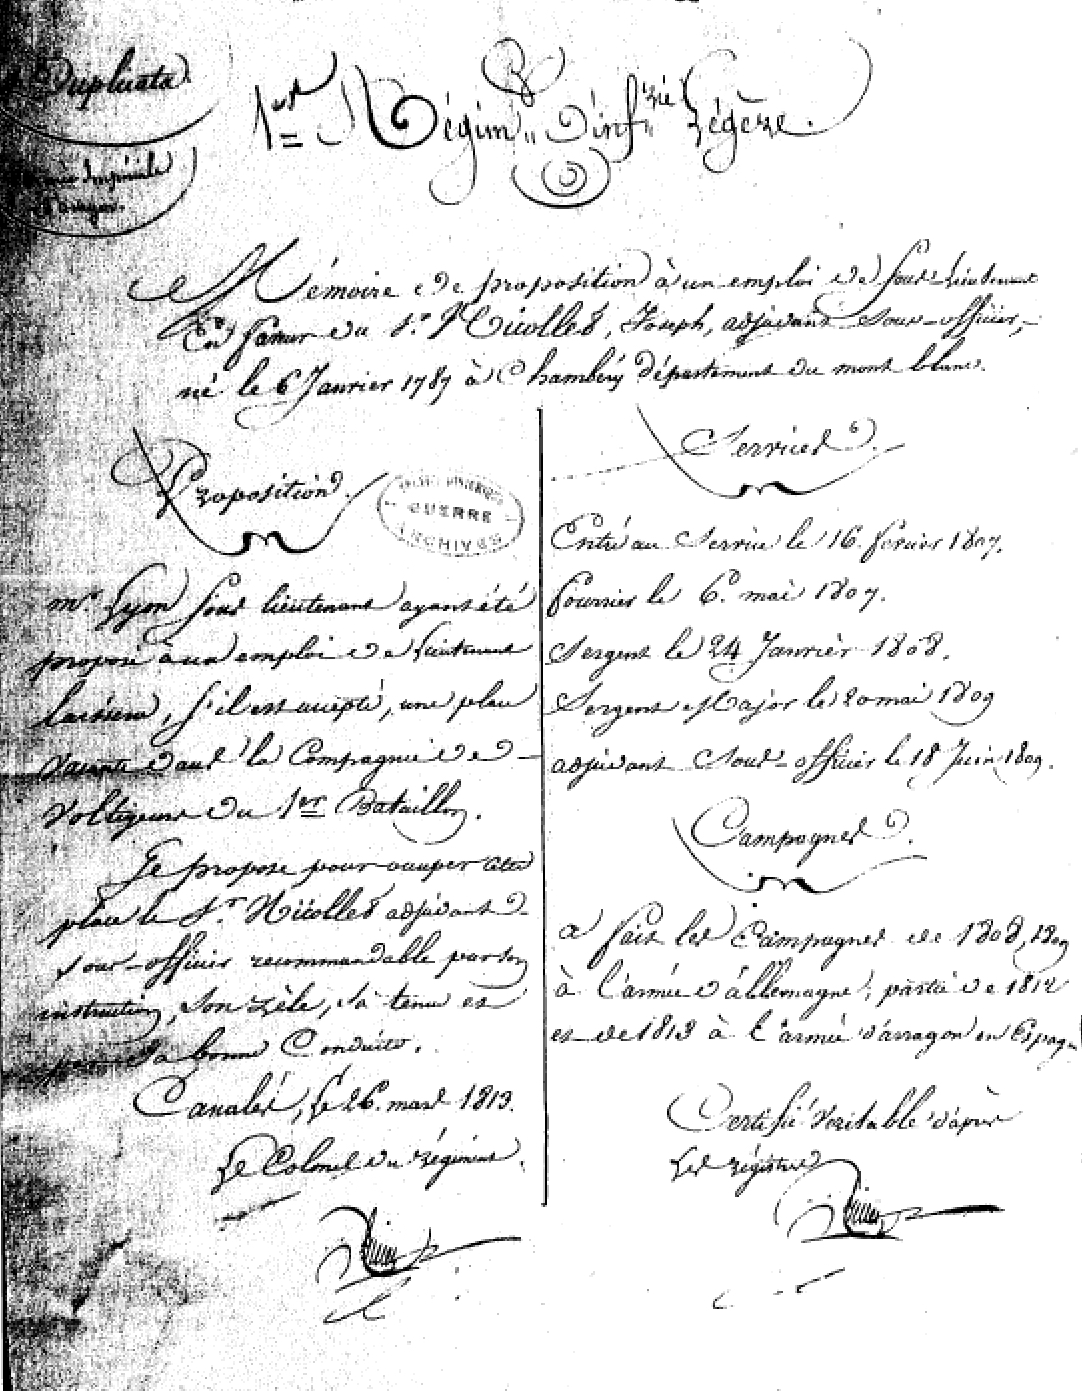 Duplicata
Armée Impériale
d'aragon.
1er Régim.t d'inf.rie Légère.
Mémoire de proposition à un emploi de sous-Lieutenant
En faveur du S.r Nicollet, Joseph, adjudant sous-officier,
né le 6 Janvier 1787 à Chambéry département du mont blanc.
Proposition.
GUERRE
ARCHIVES
mr. Lyon sous lieutenant ayant été
proposé à un emploi de Lieutenant
laissera, s'il est accepté, une place
Vacante dans la Compagnie de
Voltigeurs du 1er Bataillon.
Je propose pour occuper cette
place le S.r Nicollet adjudant
sous-officier recommandable par son
instruction, son zèle, sa tenue et
sa bonne Conduite.
Canalès, le 26 mars 1813.
Le Colonel du régiment.
Services.
Entré au Service le 16 février 1807.
fourrier le 6. mai 1807.
Sergent le 24 Janvier 1808.
Sergent Major le 20 mai 1809
adjudant Sous-officier le 18 Juin 1809.
Campagnes.
a fait les Campagnes de 1808, 1809
à l'armée d'allemagne; partie de 1812
et de 1813 à l'armée d'arragon en Espagne
Certifié Véritable d'après
Les régistres